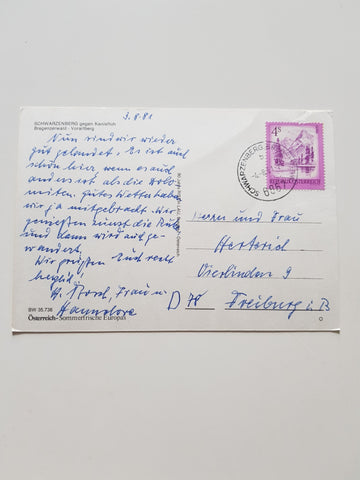 3.8.81
SCHWARZENBERG gegen Kanisfluh
Bregenzerwald - Vorarlberg
Nun sind wir wieder
gut gelandet. Es ist auch
schön hier wenn es auch
anders ist als die Dolo-
miten. Gutes Wetter haben
wir ja mitgebracht. Wir
genießen zunächst die Ruhe
und dann wird auch ge-
wandert.
Wir grüßen Euch recht
herzlich
Frau u.
Hannelore
BW 35.736
Österreich - Sommerfrische Europas
4s
REPUBLIK ÖSTERREICH
SCHWARZENBERG
6867
Herrn und Frau
Hertrich
Vierlinden 9
D 78 Freiburg i. B